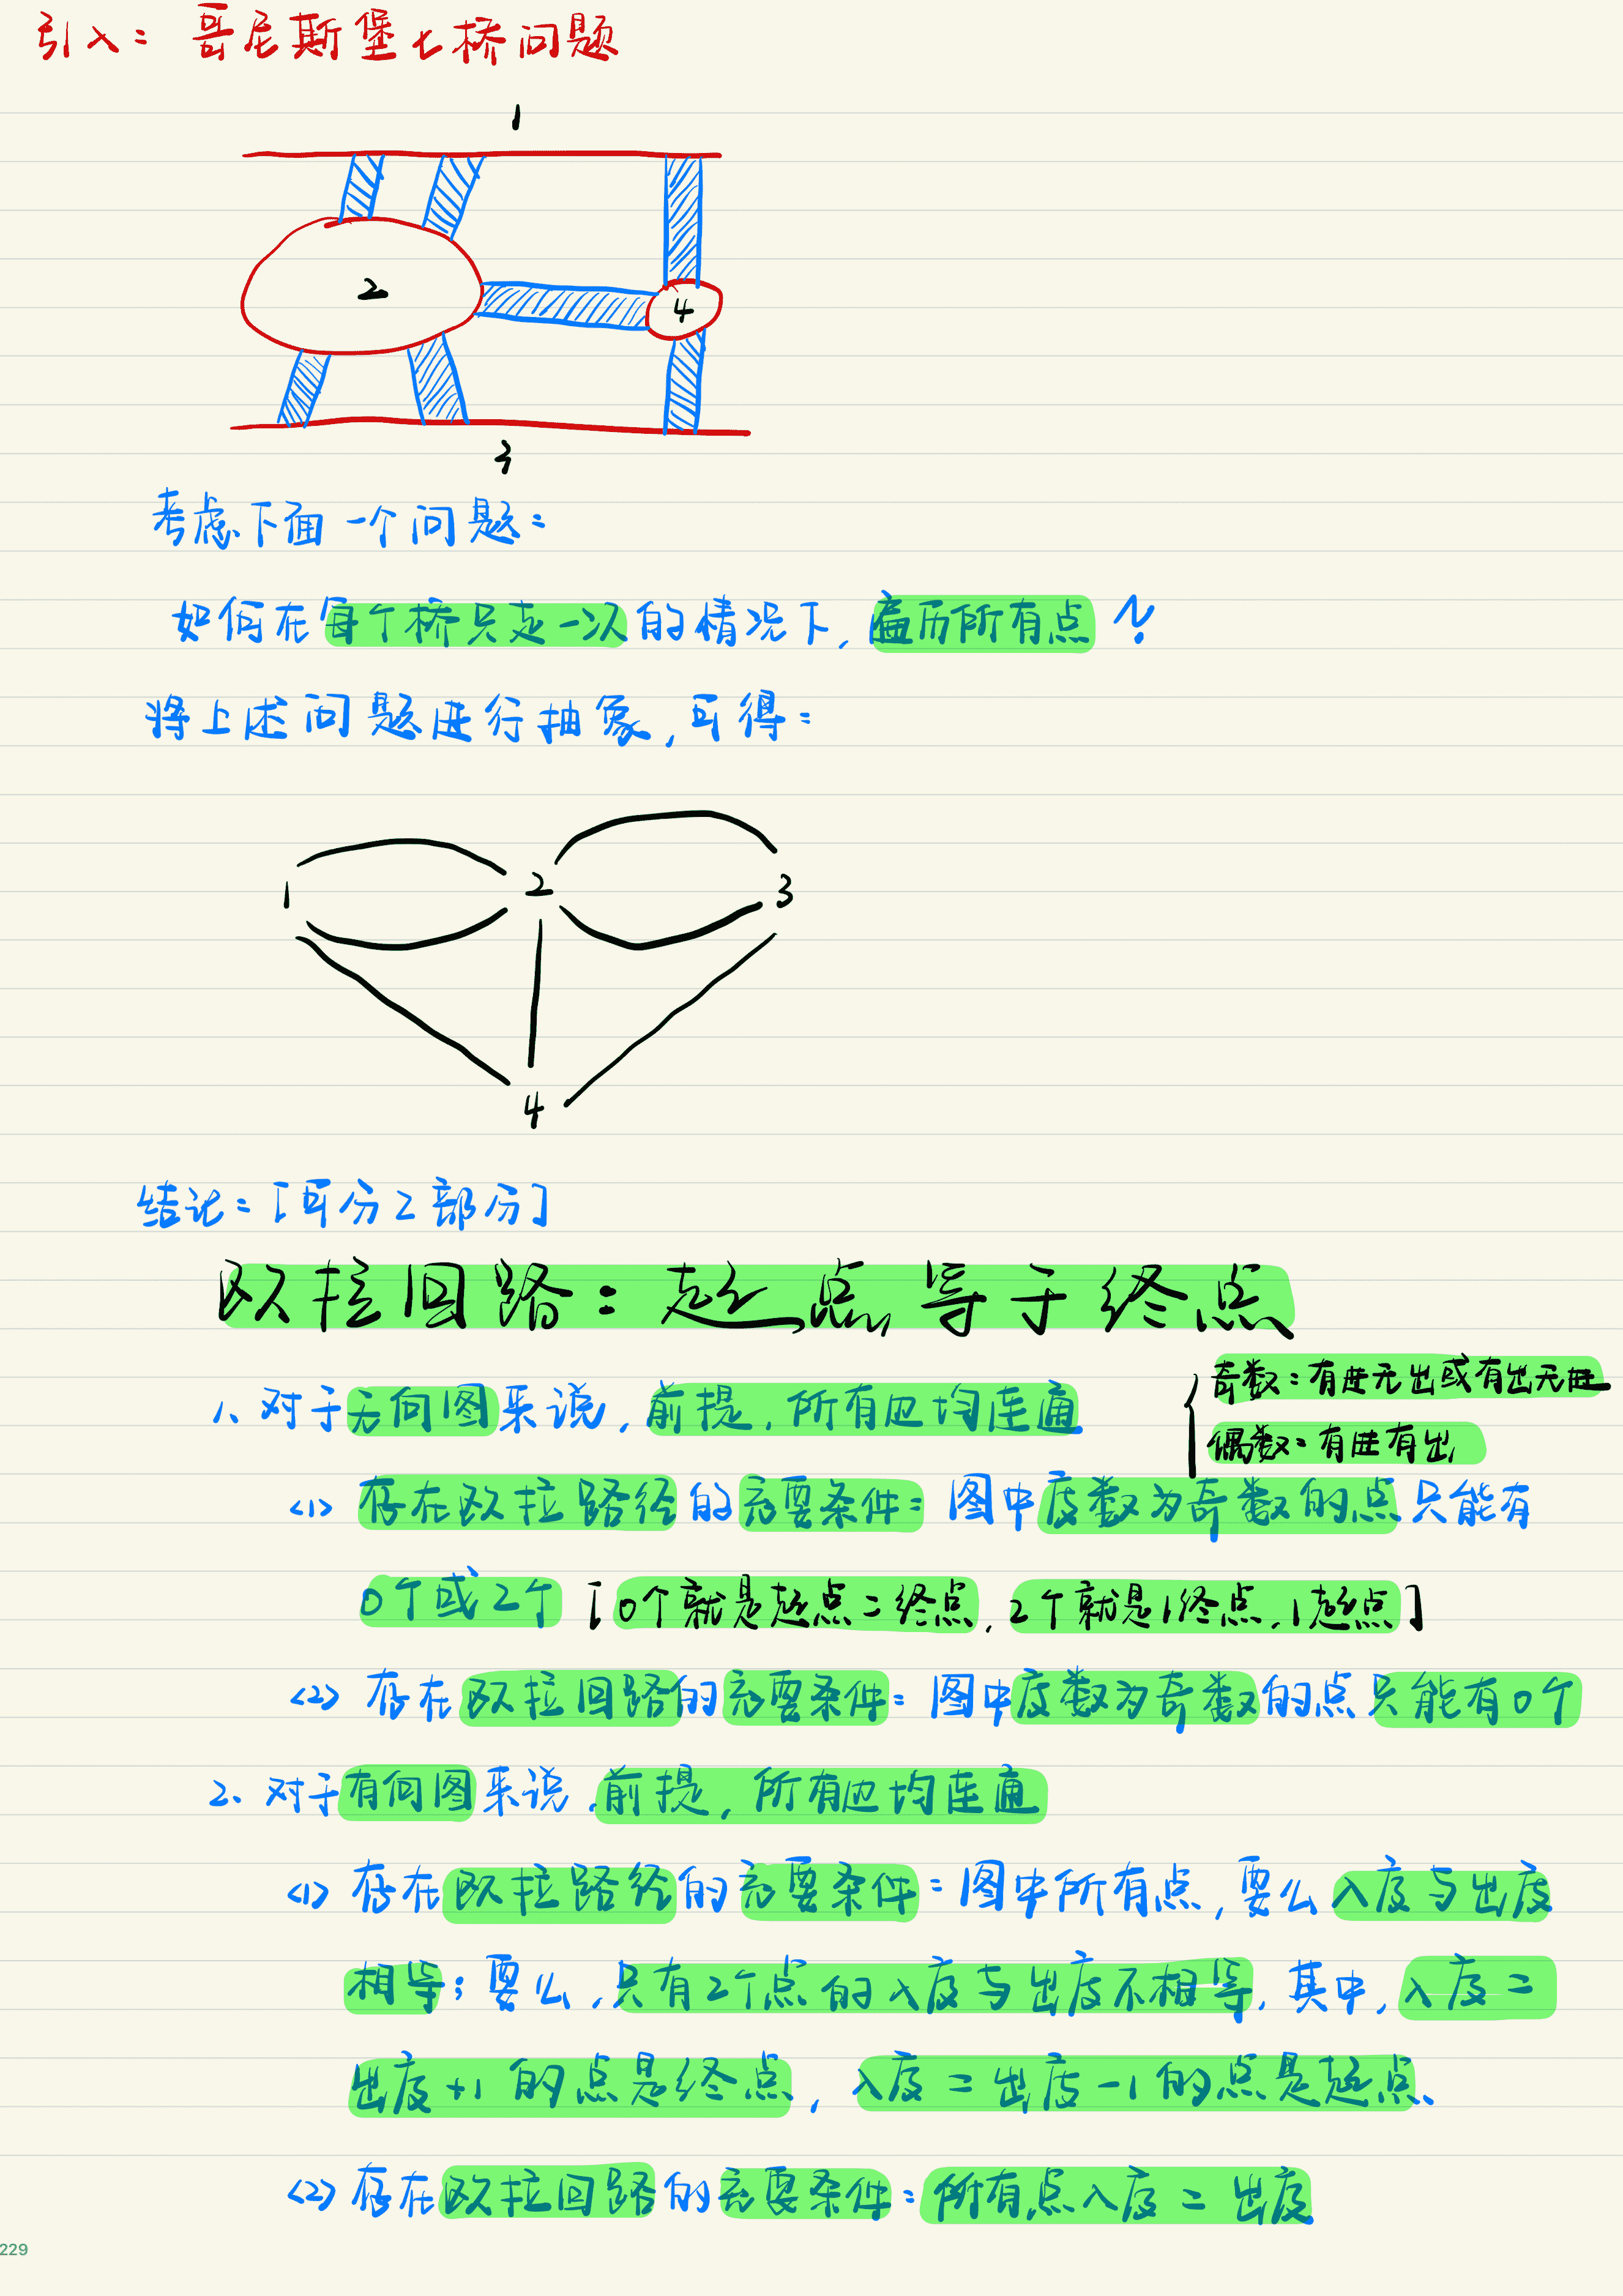 引入：哥尼斯堡七桥问题
1
2
4
3
考虑下面一个问题：
如何在每个桥只走一次的情况下，遍历所有点？
将上述问题进行抽象，可得：
1
2
3
4
结论：[可分2部分]
欧拉回路：起点等于终点
奇数：有进无出或有出无进
1、对于无向图来说，前提，所有边均连通
偶数：有进有出
<1> 存在欧拉路径的充要条件：图中度数为奇数的点只能有
0个或2个 [0个就是起点=终点，2个就是1终点，1起点]
<2> 存在欧拉回路的充要条件：图中度数为奇数的点只能有0个
2、对于有向图来说，前提，所有边均连通
<1> 存在欧拉路径的充要条件：图中所有点，要么入度与出度
相等；要么，只有2个点的入度与出度不相等，其中，入度=
出度+1的点是终点，入度=出度-1的点是起点、
<2> 存在欧拉回路的充要条件：所有点入度=出度
229